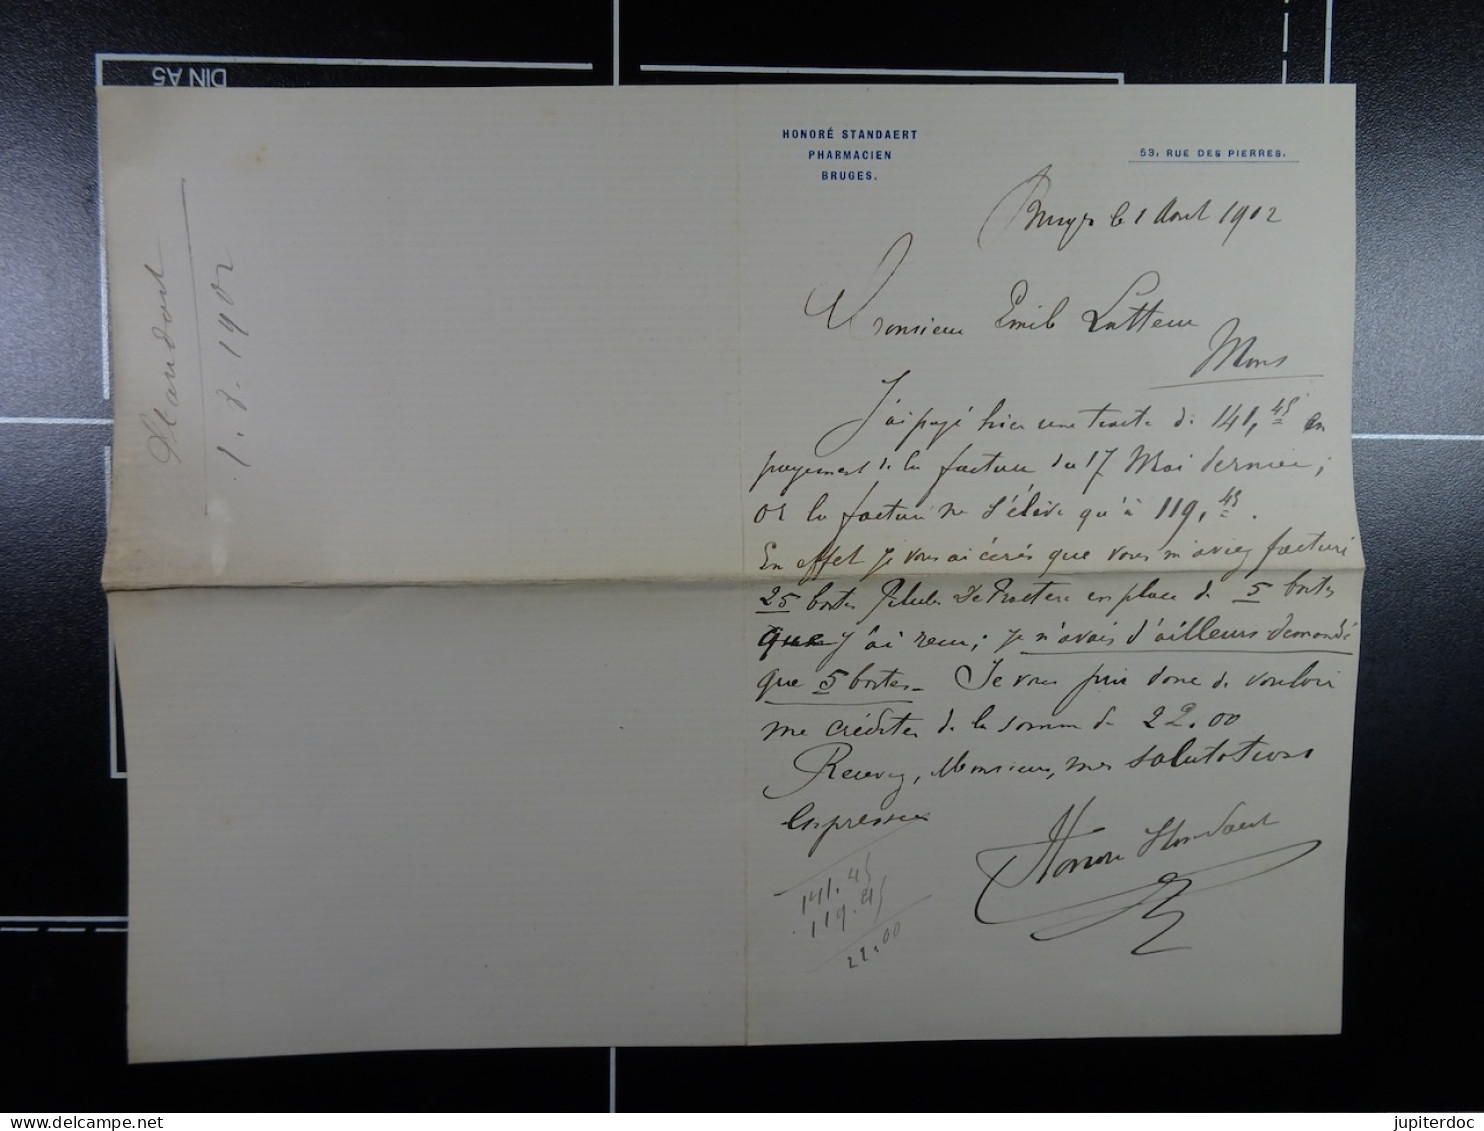 DIN A5
HONORÉ STANDAERT
PHARMACIEN
BRUGES.
53, RUE DES PIERRES.
Bruges le 1 Aout 1902
Monsieur Emile Latteur
Mons
J'ai payé hier une traite de 141,45 en
payement de la facture du 17 Mai dernier;
or la facture ne s'élève qu'à 119,45.
En effet je vous ai que vous m'aviez facturé
25 boites Pilules De en place de 5 boites
que j'ai reçu; je n'avais d'ailleurs demandé
que 5 boites. Je vous prie donc de vouloir
me créditer de la somme de 22.00
Recevez, Monsieur, mes salutations
empressées
Honoré Standaert
141.45
119.45
22.00
Standaert
1.8.1902
jupiterdoc
delcampe.net